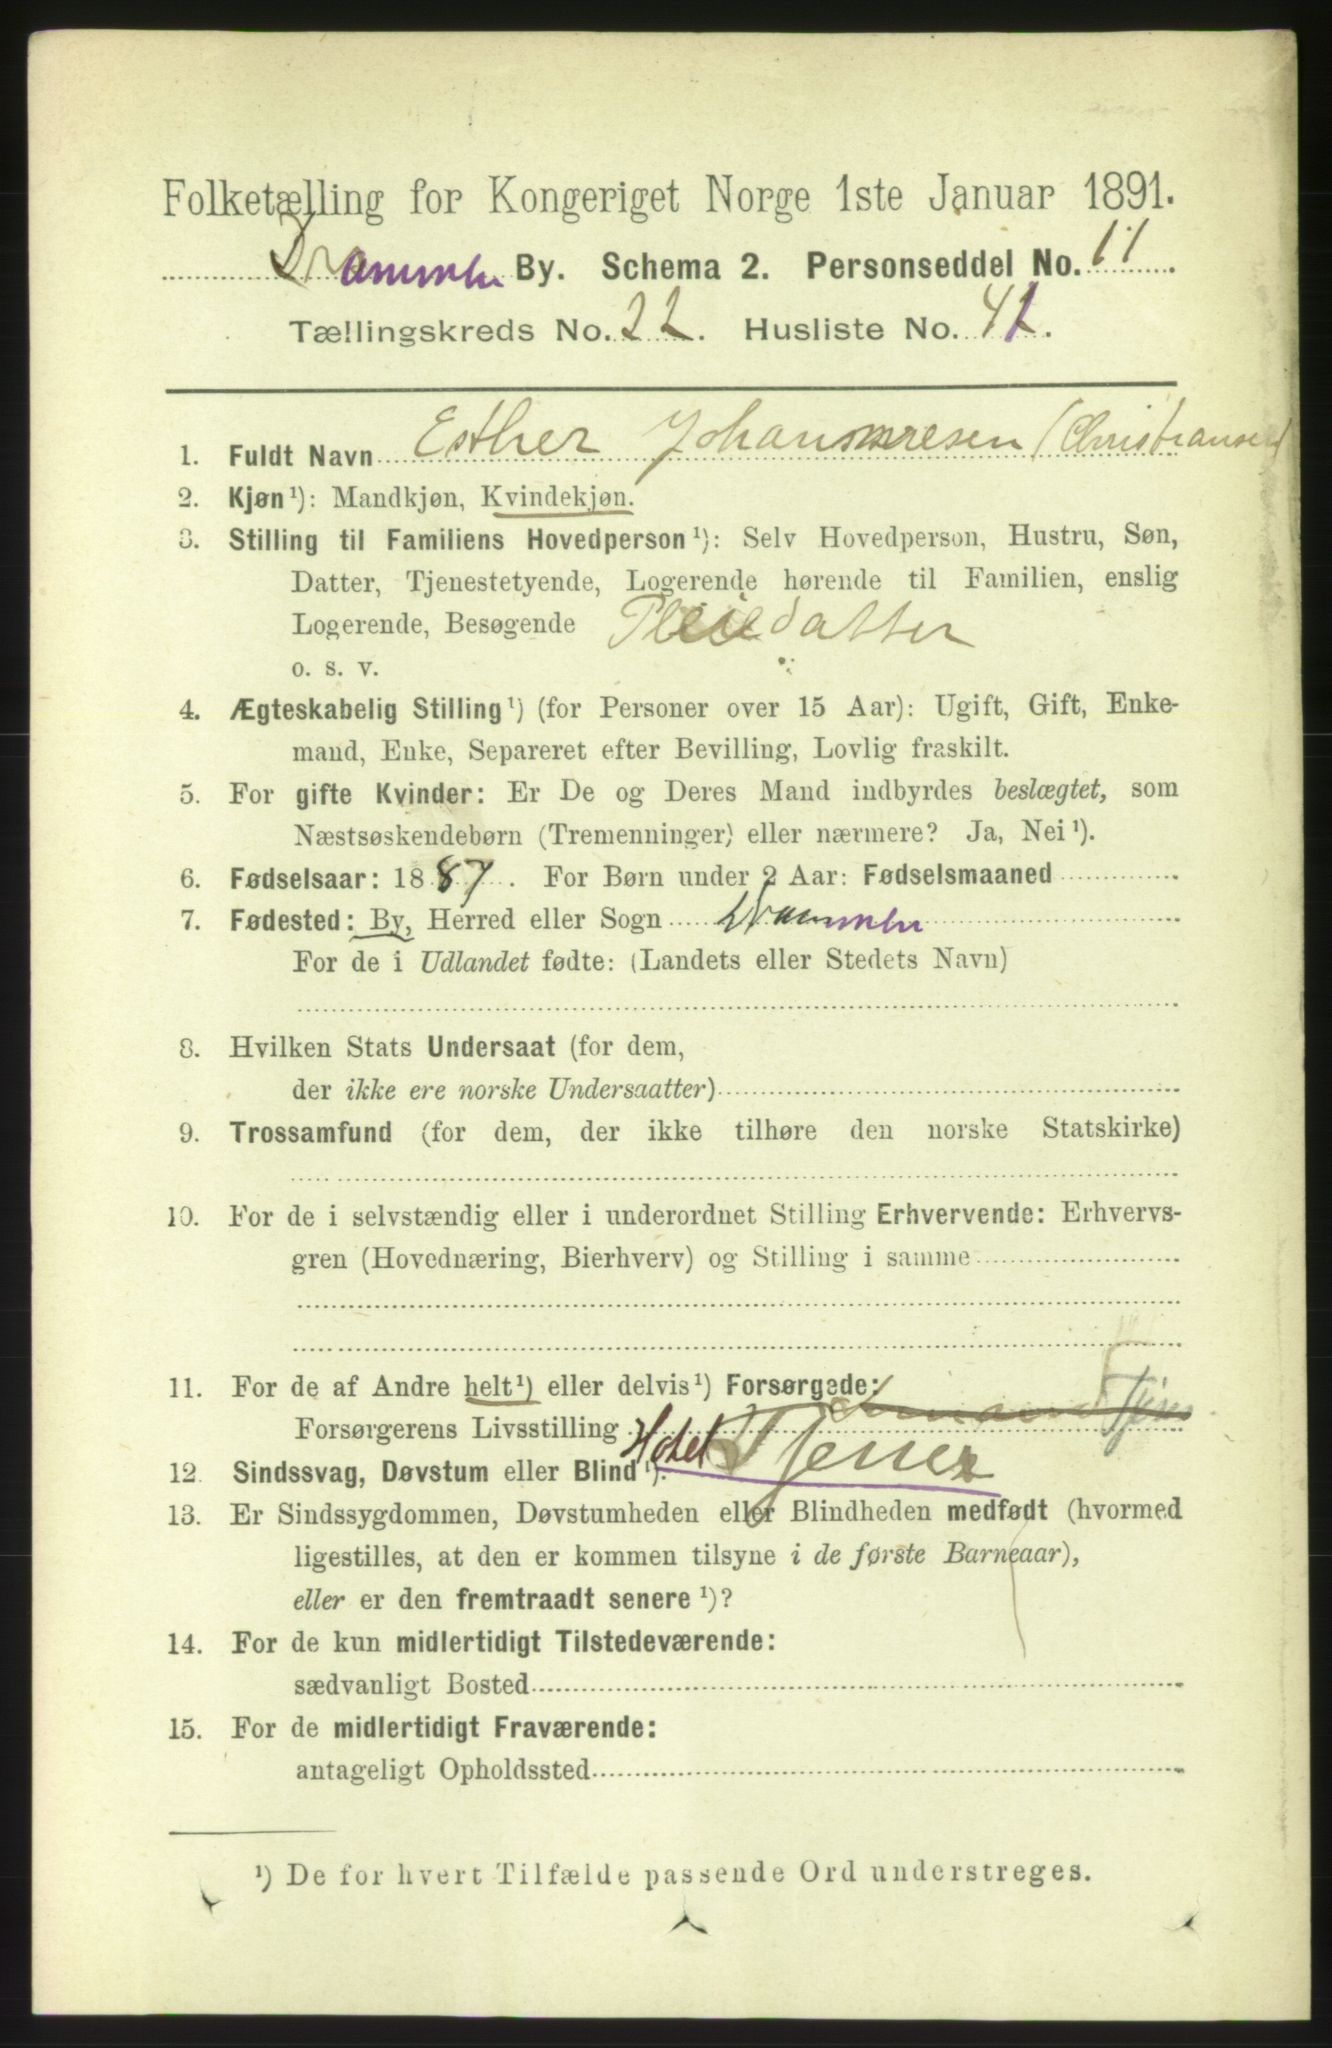 Folketælling for Kongeriget Norge 1ste Januar 1891.
Drammen By. Schema 2. Personseddel No. 11.
Tællingskreds No. 22. Husliste No. 42.
1. Fuldt Navn Esther (Christiansen)
2. Kjøn¹): Mandkjøn, Kvindekjøn.
3. Stilling til Familiens Hovedperson¹): Selv Hovedperson, Hustru, Søn,
Datter, Tjenestetyende, Logerende hørende til Familien, enslig
Logerende, Besøgende Pleiedatter
o. s. v.
4. Ægteskabelig Stilling¹) (for Personer over 15 Aar): Ugift, Gift, Enke-
mand, Enke, Separeret efter Bevilling, Lovlig fraskilt.
5. For gifte Kvinder: Er De og Deres Mand indbyrdes beslægtet, som
Næstsøskendebørn (Tremenninger) eller nærmere? Ja, Nei¹).
6. Fødselsaar: 1887. For Børn under 2 Aar: Fødselsmaaned
7. Fødested: By, Herred eller Sogn Drammen
For de i Udlandet fødte: (Landets eller Stedets Navn)
8. Hvilken Stats Undersaat (for dem,
der ikke ere norske Undersaatter)
9. Trossamfund (for dem, der ikke tilhøre den norske Statskirke)
10. For de i selvstændig eller i underordnet Stilling Erhvervende: Erhvervs-
gren (Hovednæring, Bierhverv) og Stilling i samme
11. For de af Andre helt¹) eller delvis¹) Forsørgede:
Forsørgerens Livsstilling Hotel Tjener
12. Sindssvag, Døvstum eller Blind¹).
13. Er Sindssygdommen, Døvstumheden eller Blindheden medfødt (hvormed
ligestilles, at den er kommen tilsyne i de første Barneaar),
eller er den fremtraadt senere¹)?
14. For de kun midlertidigt Tilstedeværende:
sædvanligt Bosted
15. For de midlertidigt Fraværende:
antageligt Opholdssted
¹) De for hvert Tilfælde passende Ord understreges.